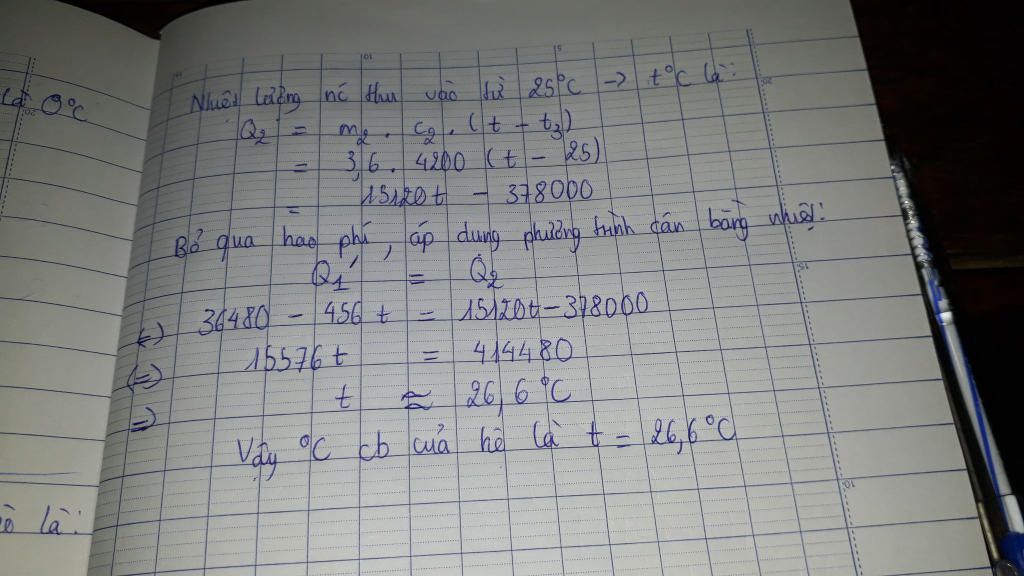 là 0°C
Nhiệt lượng nc thu vào từ 25°C → t°C là:
Q2 = m2 . c2 . (t - t3)
= 3,6 . 4200 (t - 25)
= 15120t - 378000
Bỏ qua hao phí, áp dụng phương trình cân bằng nhiệt:
Q1' = Q2
(=) 36480 - 456t = 15120t - 378000
(=) 15576t = 414480
=> t ≈ 26,6°C
Vậy °C cb của hệ là t = 26,6°C
là: